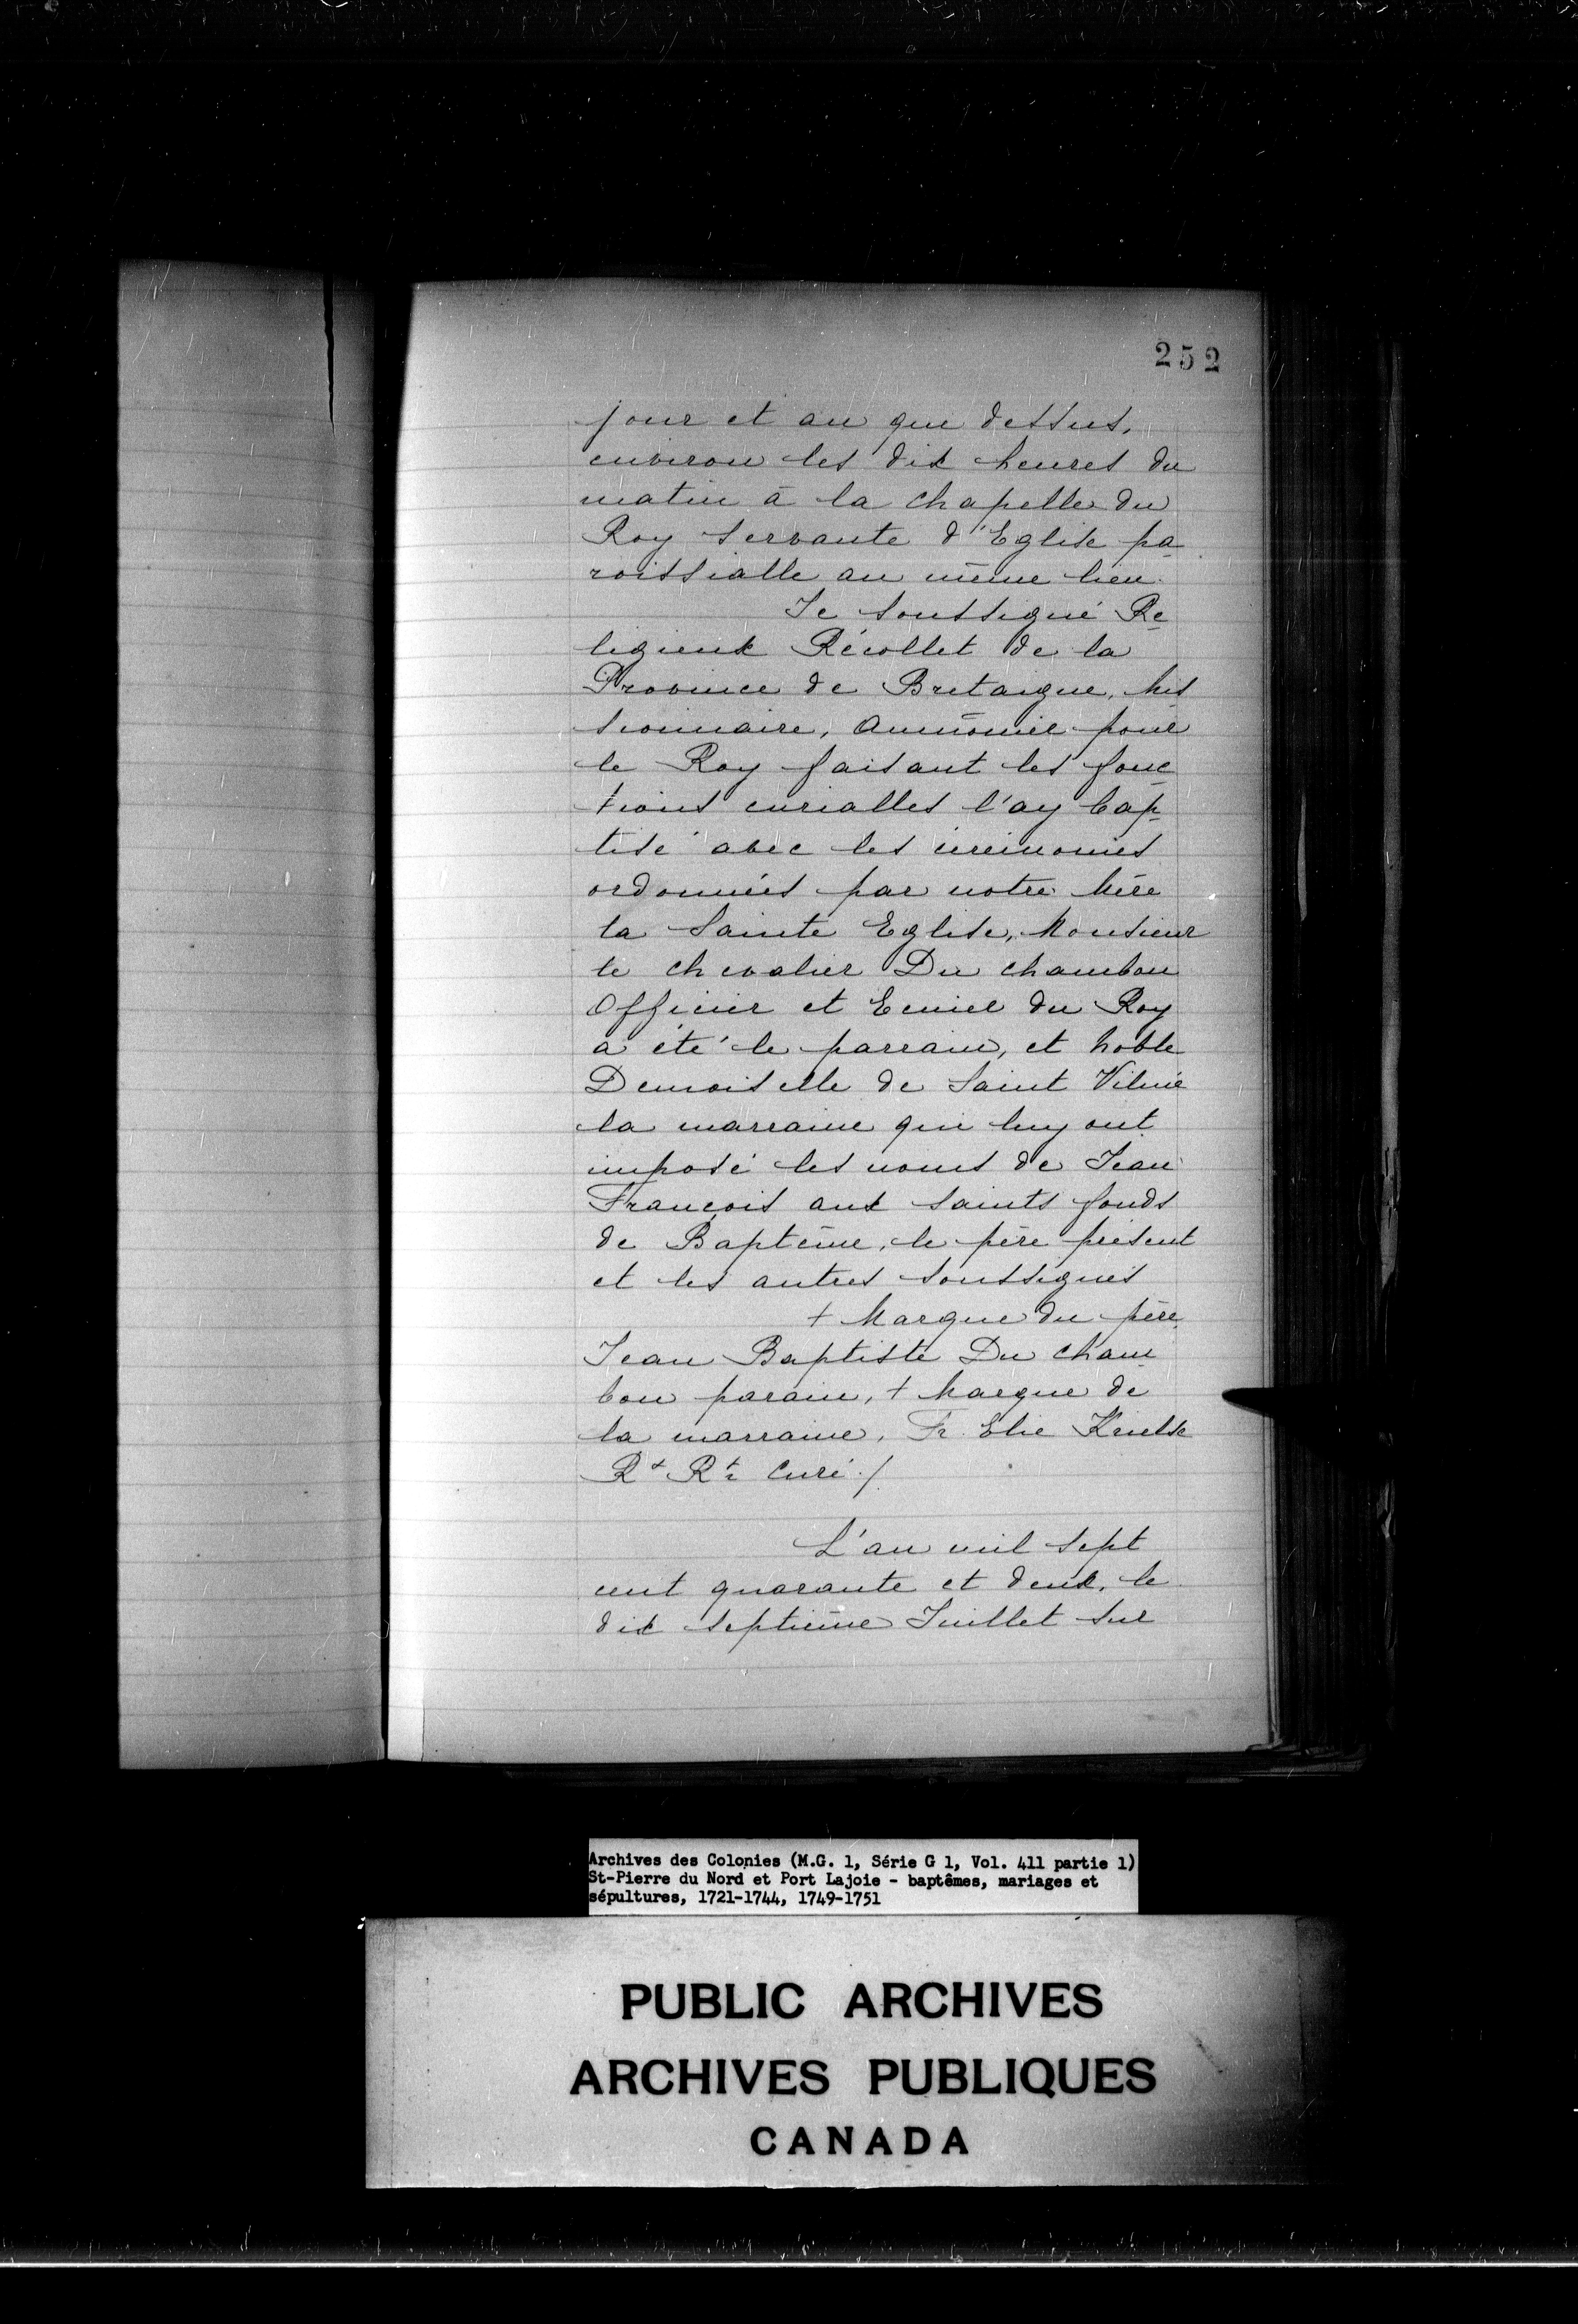 252
jour et an que dessus,
environ les dix heures du
matin à la chapelle du
Roy servante d'Eglise pa
roissialle au même lieu.
Je soussigné Re
ligieux Récollet de la
Province de Bretaigne, Mis
sionnaire, Aumônier pour
le Roy faisant les fonc
tions curialles l'ay bap
tisé avec les cérémonies
ordonnées par notre Mère
la Sainte Eglise, Monsieur
le chevalier Du chambon
Officier et Ecuier du Roy
a été le parrain, et Noble
Demoiselle de Saint Vilmé
la marraine qui luy ont
imposé les noms de Jean
François aux saints fonds
de Baptême, le père présent
et les autres soussignés
+ Marque du père
Jean Baptiste Du Cham
bon parain, + Marque de
la marraine, Fr. Elie
Rt Rtr Curé ./.
L'an mil sept
cent quarante et deux, le
dix septième Juillet sur
Archives des Colonies (M.G. 1, Série G 1, Vol. 411 partie 1)
St-Pierre du Nord et Port Lajoie - baptêmes, mariages et
sépultures, 1721-1744, 1749-1751
PUBLIC ARCHIVES
ARCHIVES PUBLIQUES
CANADA